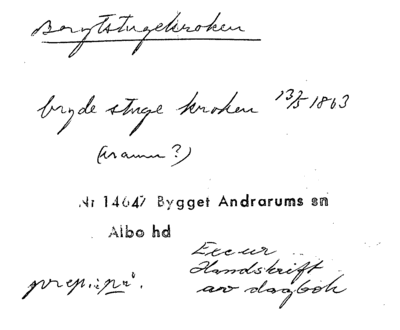 Bergtstugekroken
bryde stuge kroken 13/5 1863
(aramu?)
Nr 14647 Bygget Andrarums sn
Albo hd
Excur
Handskrift
prep. : på. av dagbok